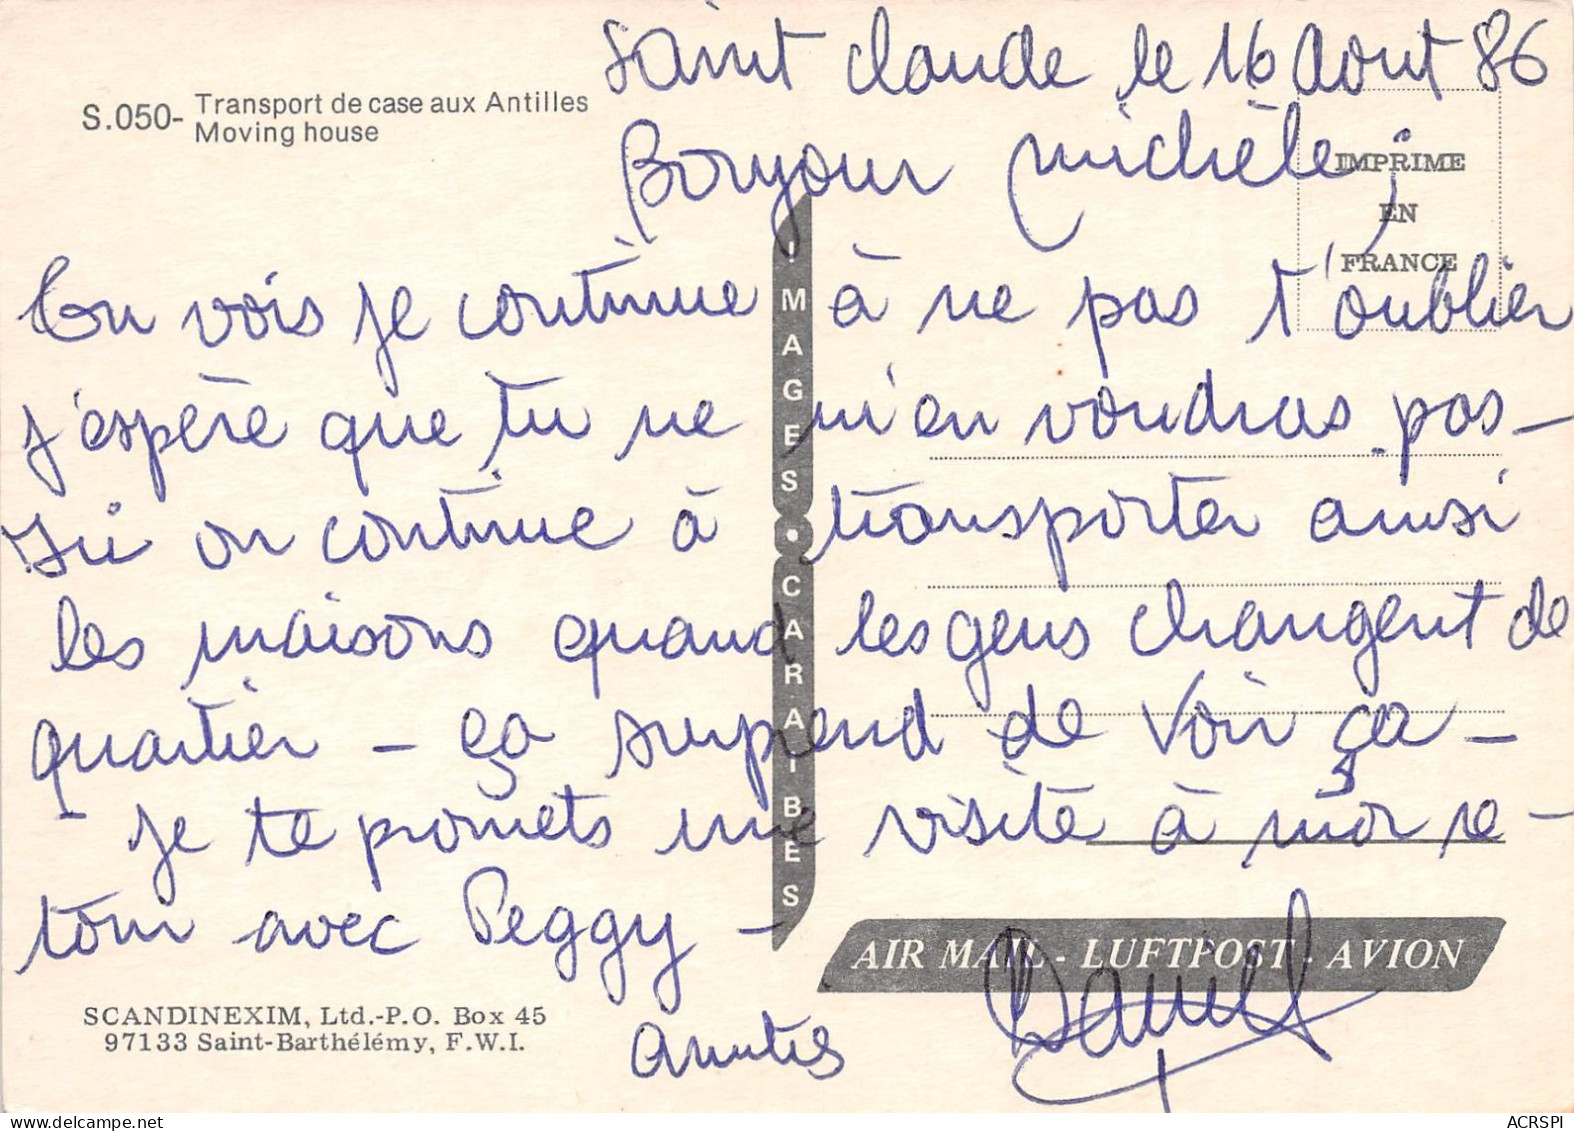 Saint Claude le 16 Aout 86
S.050- Transport de case aux Antilles
Moving house
Bonjour Michèle,
IMPRIME
EN
FRANCE
Tu vois je continue à ne pas t'oublier
j'espère que tu ne m'en voudras pas -
Ici on continue à transporter ainsi
les maisons quand les gens changent de
quartier - ça surprend de voir ça -
- je te promets une visite à mon re-
tour avec Peggy -
IMAGES • CARAIBES
AIR MAIL - LUFTPOST - AVION
SCANDINEXIM, Ltd.-P.O. Box 45
97133 Saint-Barthélémy, F.W.I.
Amitiés
Daniel
delcampe.net
ACRSPI